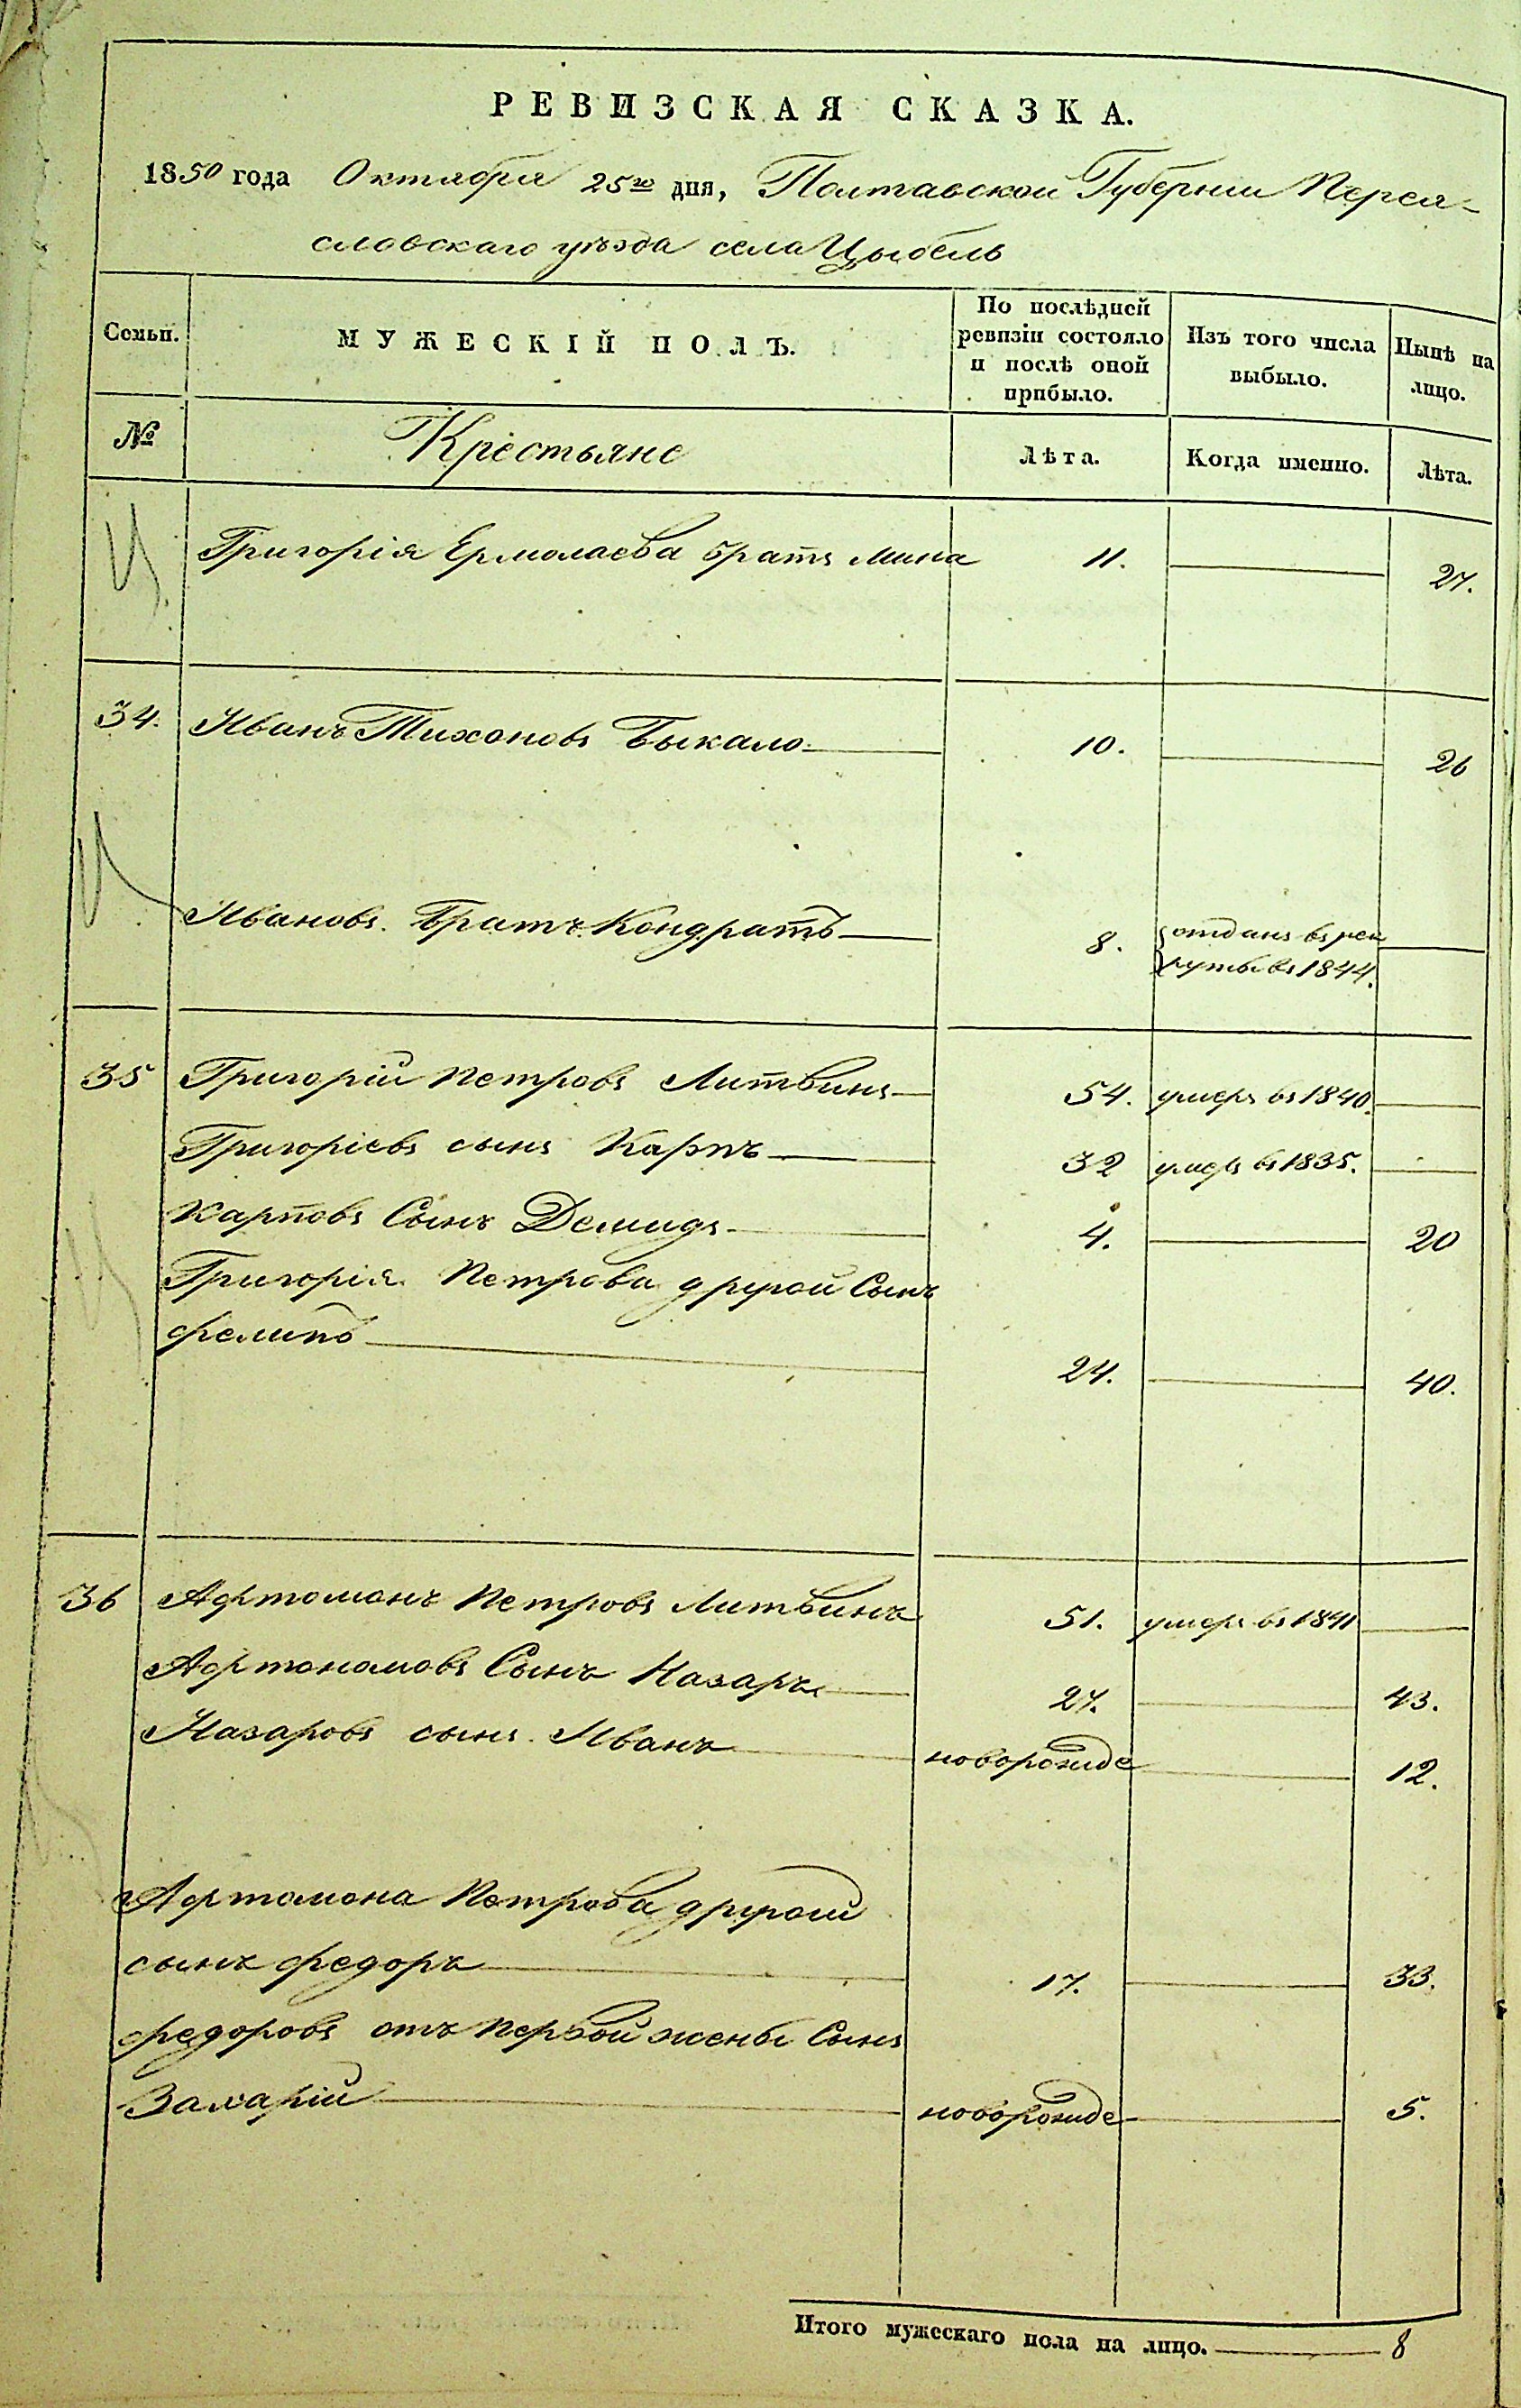 РЕВИЗСКАЯ СКАЗКА.
1850 года Октября 25го дня, Полтавской Губернии Перея-
словскаго уѣзда села Цыбель
Семьи. МУЖЕСКІЙ ПОЛЪ. По послѣдней ревизіи состояло и послѣ оной прибыло. Изъ того числа выбыло. Нынѣ на лицо.
№ Крестьяне Лѣта. Когда именно. Лѣта.
Григорія Ермолаева братъ Мина 11. 27.
34. Иванъ Тихоновъ Быкало 10. 26
Ивановъ Братъ Кондратъ 8. отданъ въ рек
руты въ 1844.
35 Григорій Петровъ Литвинъ 54. умеръ въ 1840.
Григоріевъ сынъ Карпъ 32 умеръ въ 1835.
Карповъ Сынъ Демидъ 4. 20
Григорія Петрова другой Сынъ
Фелипъ 24. 40.
36 Афтомонъ Петровъ Литвинъ 51. умеръ въ 1841
Афтономовъ Сынъ Назаръ 27. 43.
Назаровъ сынъ Иванъ новорожде 12.
Афтомона Петрова другой
сынъ Федоръ 17. 33.
Федоровъ отъ первой жены Сынъ
Захарій новорожде 5.
Итого мужескаго пола на лицо. 8